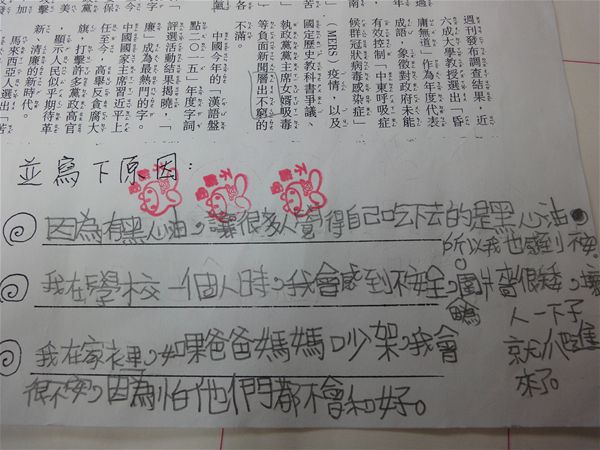 週刊發布調查結果，近
六成大學教授選出「昏
庸無道」作為年度代表
成語，象徵對政府未能
有效控制「中東呼吸症
候群冠狀病毒感染症」
（MERS）疫情，以及
國定歷史教科書爭議、
執政黨黨主席女婿吸毒
等負面新聞層出不窮的
不滿。
中國今年的「漢語盤
點二〇一五」年度字詞
評選活動結果揭曉，「
廉」成為最熱門的字。
中國國家主席習近平上
任至今，高舉反貪腐大
旗，打擊許多黨政高官
，顯示人民似乎期待革
新、清廉的新時代。
馬來西亞人選出「苦
並寫下原因：
因為有黑心油，讓很多人覺得自己吃下去的是黑心油
所以我也感到不安。
我在學校一個人時，我會感到不安全。圍牆很矮，讓
人一下子
就
來了。
我在家裡，如果爸爸媽媽吵架，我會
很不安，因為怕他們都不會和好。